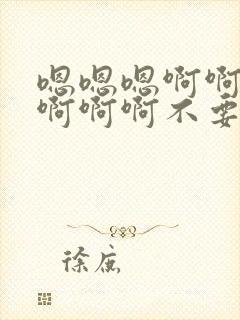 嗯嗯嗯啊啊
啊啊啊不要
徐庶